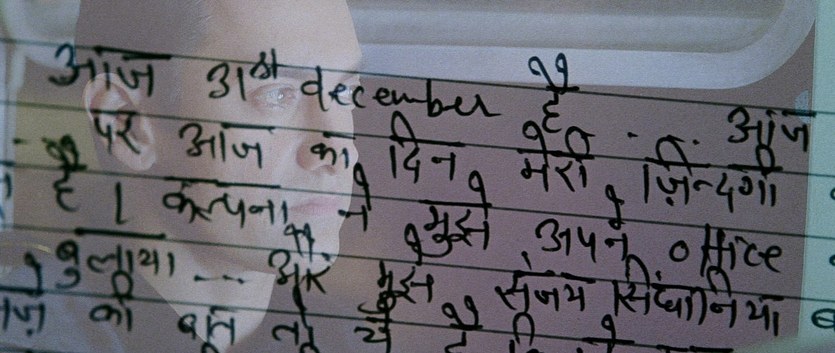 आज 31st december है .... आज
पर आज का दिन मेरी ज़िन्दगी
है । कल्पना ने मुझे अपने office
बुलाया .... और मुझे संजय सिंघानिया
की बात तो ये है कि